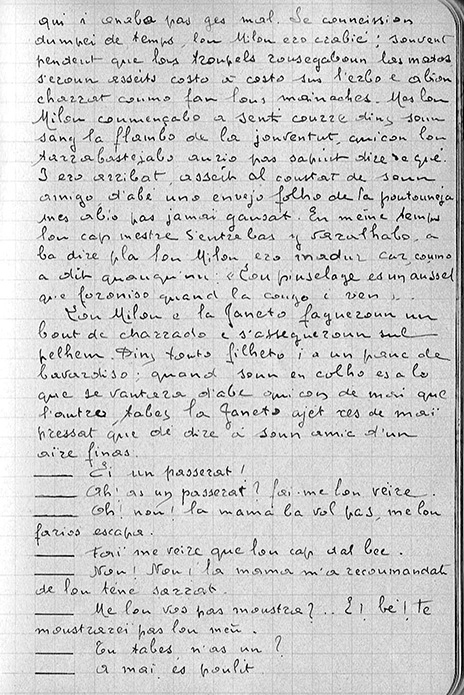 qui i anabo pas ges mal. Se conneission
dumpei de temps, lou Milou ero crabié; souvent
pendent que lous troupels rousegaboun las matos
s'eroun asseits costo a costo sus l'erbo e abion
charrat coumo fan lous mainaches. Mes lou
Milou coumençabo a senti courre dins soun
sang la flambo de la jouventut, quicon lou
tarrabastejabo aurio pas sapiut dire de qué.
I ero arribat, asseit al coustat de soun
amigo d'abé uno envejo folho de la poutouneja
mes abio pas jamai gausat. En meme temps
lou cap mestre s'entrebas y varalhabo, a
ba dire pla lou Milou ero madur car coumo
a dit quauqu'un: « Lou pinselage es un aussel
que foroniso quand la cougo i ven ».
Lou Milou e la Janeto fagueroun un
bout de charrado e s'assegueroun sul
pelhem. Dins touto filheto i a un pauc de
bavardiso; quand soun en colho es a lo
que se vantara d'abé quicon de mai que
l'autre, tabes la Janeto ajet res de mai
pressat que de dire à soun amic d'un
aire finas.
— Ei un passerat!
— Oh! as un passerat? fai-me lou veire.
— Oh! nou! la mama ba vol pas, me lou
farios escapa.
— Fai me veire que lou cap dal bec.
— Nou! Nou! la mama m'a recoumandat
de lou tene sarrat.
— Me lou vos pas moustra?.. E! bé! te
moustrarei pas lou meu.
— Tu tabes n'as un?
— a mai es poulit.